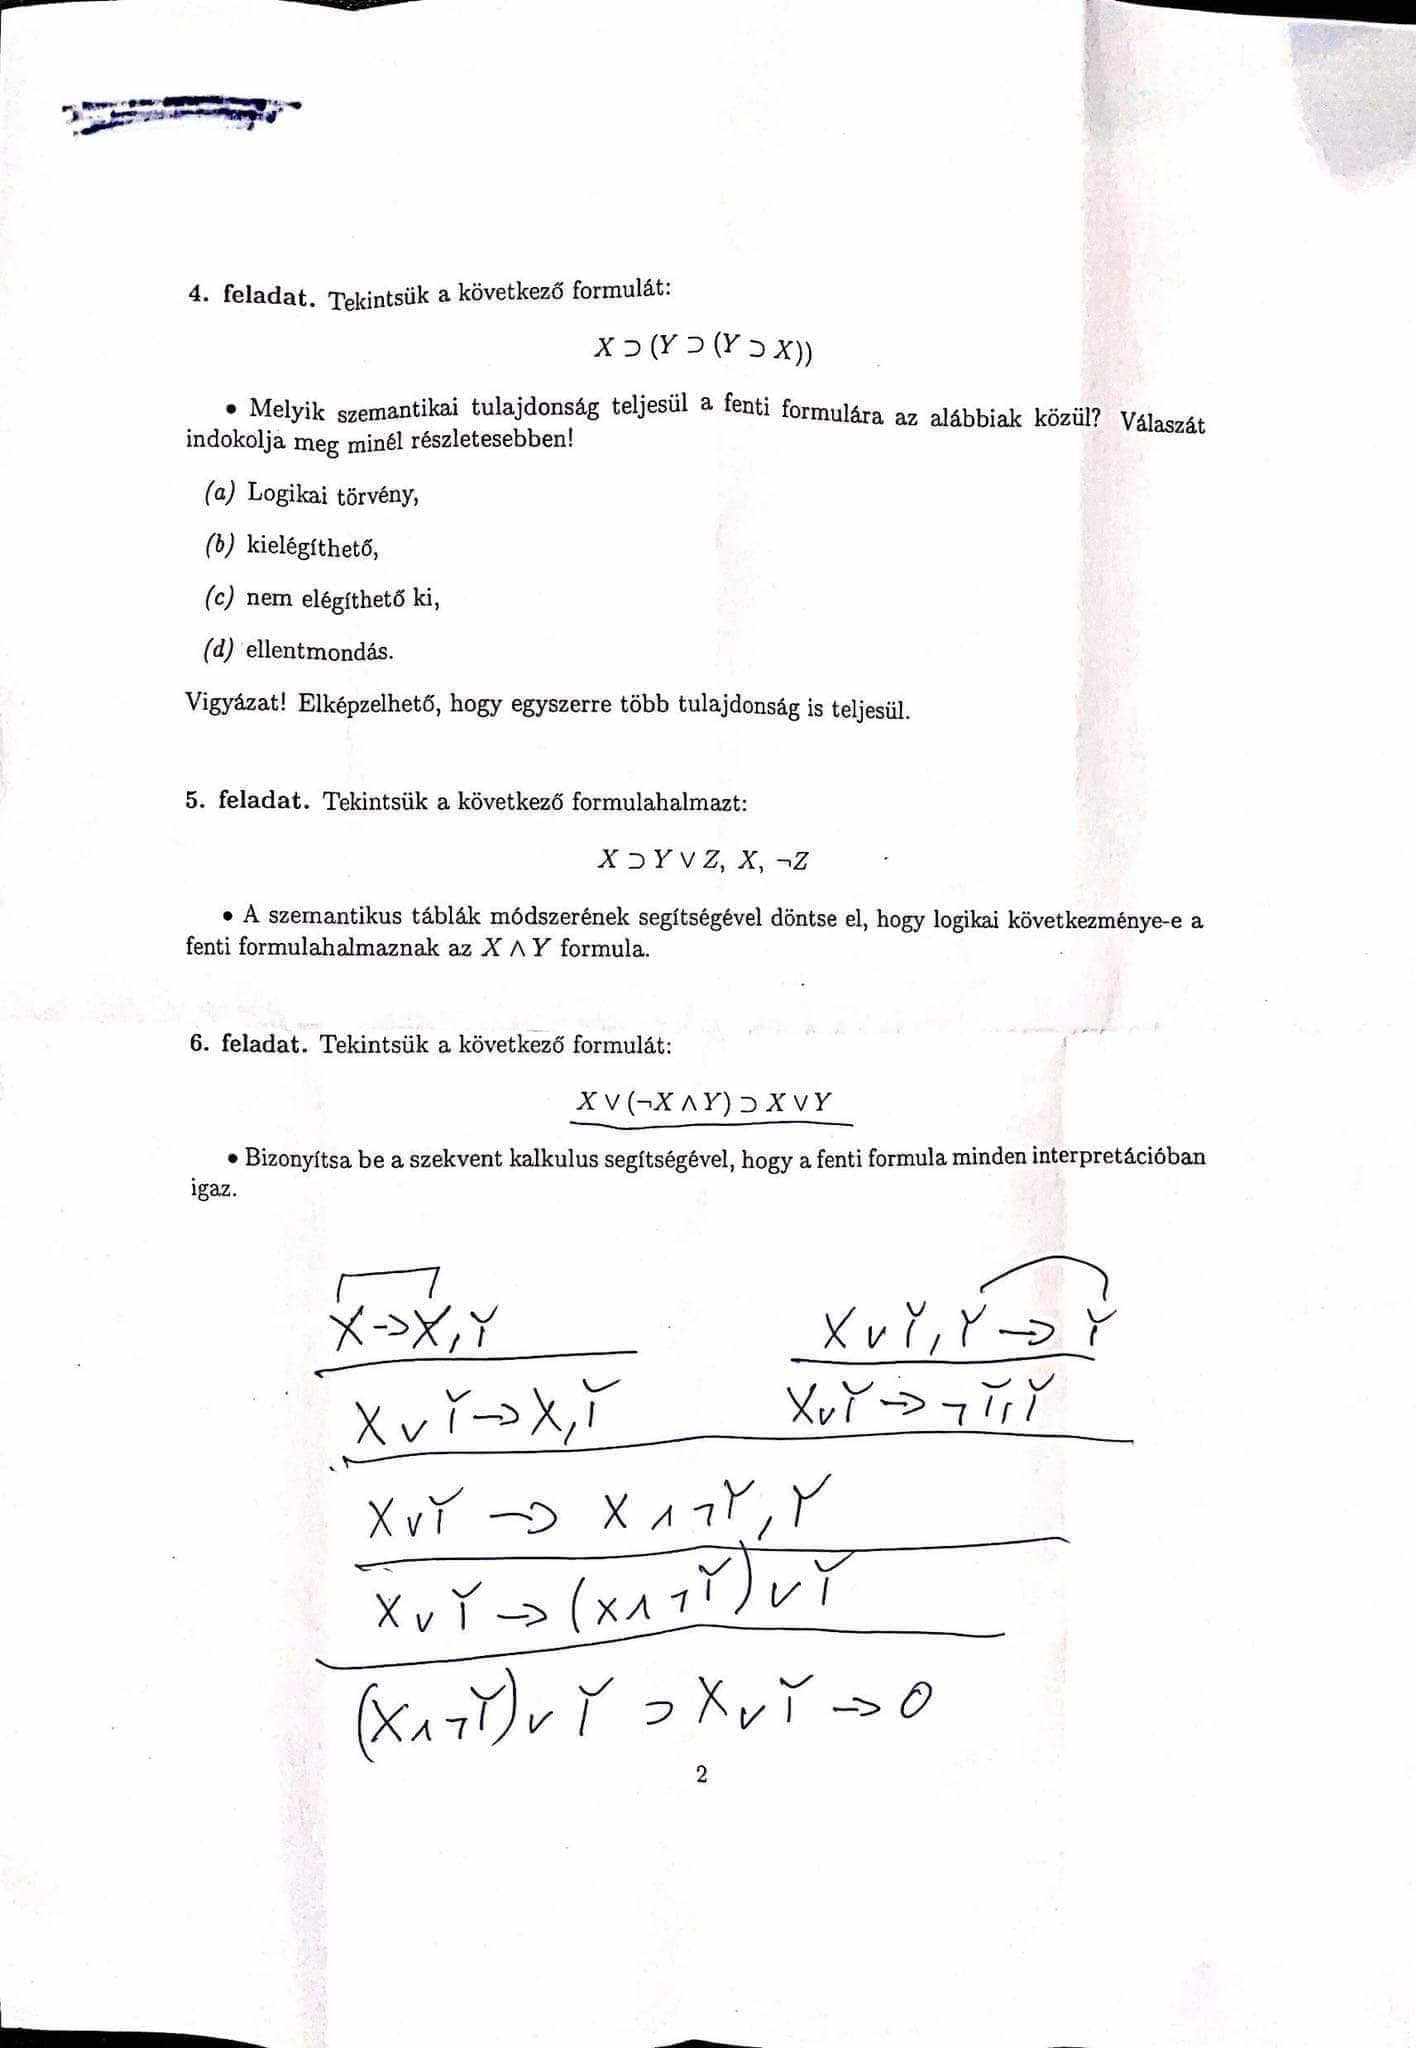 4. feladat. Tekintsük a következő formulát:
X ⊃ (Y ⊃ (Y ⊃ X))
• Melyik szemantikai tulajdonság teljesül a fenti formulára az alábbiak közül? Válaszát
indokolja meg minél részletesebben!
(a) Logikai törvény,
(b) kielégíthető,
(c) nem elégíthető ki,
(d) ellentmondás.
Vigyázat! Elképzelhető, hogy egyszerre több tulajdonság is teljesül.
5. feladat. Tekintsük a következő formulahalmazt:
X ⊃ Y ∨ Z, X, ¬Z
• A szemantikus táblák módszerének segítségével döntse el, hogy logikai következménye-e a
fenti formulahalmaznak az X ∧ Y formula.
6. feladat. Tekintsük a következő formulát:
X ∨ (¬X ∧ Y) ⊃ X ∨ Y
• Bizonyítsa be a szekvent kalkulus segítségével, hogy a fenti formula minden interpretációban
igaz.
X → X, Y X ∨ Y, Y → Y
X ∨ Y → X, Y X ∨ Y → ¬Y, Y
X ∨ Y → X ∧ ¬Y, Y
X ∨ Y → (X ∧ ¬Y) ∨ Y
(X ∧ ¬Y) ∨ Y ⊃ X ∨ Y → 0
2